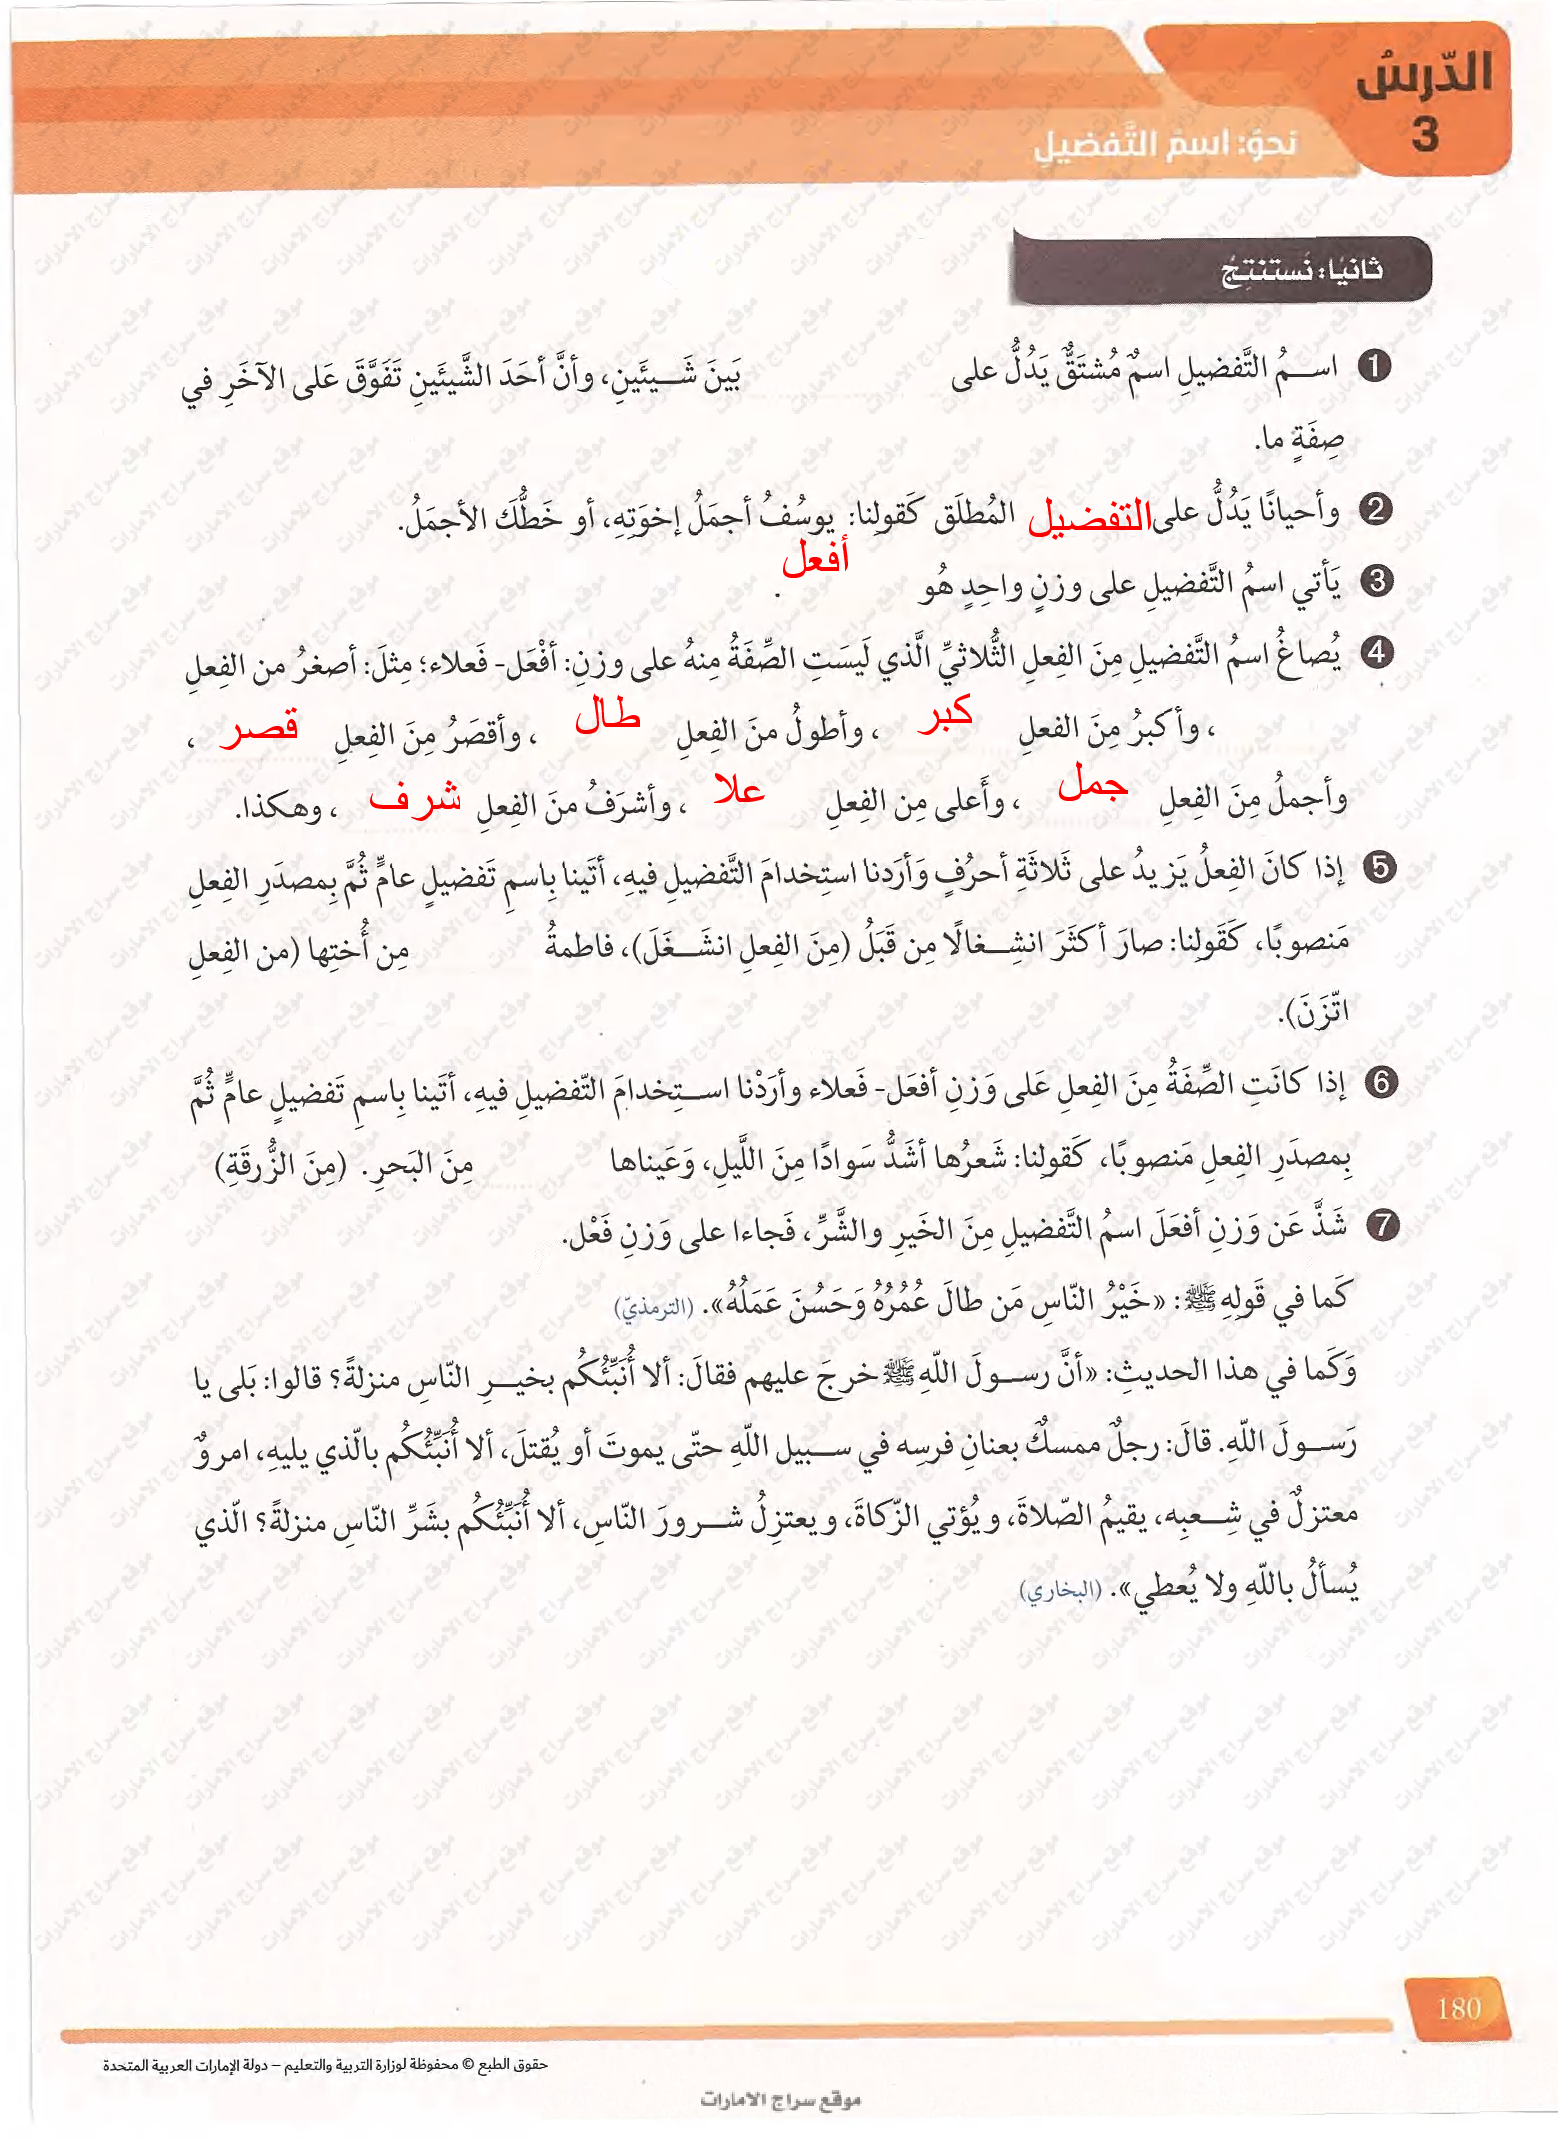 الدّرسُ
3
نحوُ: اسمُ التَّفضيلِ
ثانيًا: نَستنتِجُ
1 اسمُ التَّفضيلِ اسمٌ مُشتَقٌّ يَدُلُّ على بَينَ شَيئَينِ، وأنَّ أحَدَ الشَّيئَينِ تَفَوَّقَ عَلى الآخَرِ في
صِفَةٍ ما.
2 وأحيانًا يَدُلُّ على التفضيل المُطلَق كَقولِنا: يوسُفُ أجمَلُ إخوَتِهِ، أو خَطُّكَ الأجمَلُ.
3 يَأتي اسمُ التَّفضيلِ على وزنٍ واحِدٍ هُو أفعل .
4 يُصاغُ اسمُ التَّفضيلِ مِنَ الفِعلِ الثُّلاثيِّ الَّذي لَيسَتِ الصِّفَةُ مِنهُ على وزنِ: أفْعَل- فَعلاء؛ مِثلَ: أصغرُ من الفِعلِ
، وأكبرُ مِنَ الفعلِ كبر ، وأطولُ منَ الفِعلِ طال ، وأقصَرُ مِنَ الفِعلِ قصر ،
وأجملُ مِنَ الفِعلِ جمل ، وأَعلى مِن الفِعلِ علا ، وأشرَفُ منَ الفِعلِ شرف ، وهكذا.
5 إذا كانَ الفِعلُ يَزيدُ على ثَلاثَةِ أحرُفٍ وَأرَدنا استِخدامَ التَّفضيلِ فيهِ، أتَينا بِاسمِ تَفضيلٍ عامٍّ ثُمَّ بِمصدَرِ الفِعلِ
مَنصوبًا، كَقَولِنا: صارَ أكثَرَ انشِغالًا مِن قَبَلُ (مِنَ الفِعلِ انشَغَلَ)، فاطمةُ مِن أُختِها (من الفِعلِ
اتّزَنَ).
6 إذا كانَتِ الصِّفَةُ مِنَ الفِعلِ عَلى وَزنِ أفعَل- فَعلاء وأرَدْنا استِخدامَ التّفضيلِ فيهِ، أتَينا بِاسمِ تَفضيلٍ عامٍّ ثُمَّ
بِمصدَرِ الفِعلِ مَنصوبًا، كَقولِنا: شَعرُها أشَدُّ سَوادًا مِنَ اللَّيلِ، وَعَيناها مِنَ البَحرِ. (مِنَ الزُّرقَةِ)
7 شَذَّ عَن وَزنِ أفعَلَ اسمُ التَّفضيلِ مِنَ الخَيرِ والشَّرِّ، فَجاءا على وَزنِ فَعْل.
كَما في قَولِهِ ﷺ: «خَيْرُ النّاسِ مَن طالَ عُمُرُهُ وَحَسُنَ عَمَلُهُ». (الترمذيّ)
وَكَما في هذا الحديثِ: «أنَّ رسولَ اللّهِ ﷺ خرجَ عليهم فقالَ: ألا أُنَبِّئُكُم بخيرِ النّاسِ منزلةً؟ قالوا: بَلى يا
رَسولَ اللّهِ. قالَ: رجلٌ ممسكٌ بعنانِ فرسِه في سبيل اللّهِ حتّى يموتَ أو يُقتلَ، ألا أُنَبِّئُكُم بالّذي يليهِ، امروٌ
معتزلٌ في شِعبِه، يقيمُ الصّلاةَ، ويُؤتي الزّكاةَ، ويعتزِلُ شرورَ النّاسِ، ألا أُنَبِّئُكُم بشَرِّ النّاسِ منزلةً؟ الّذي
يُسألُ باللّهِ ولا يُعطي». (البخاري)
180
حقوق الطبع © محفوظة لوزارة التربية والتعليم – دولة الإمارات العربية المتحدة
موقع سراج الامارات